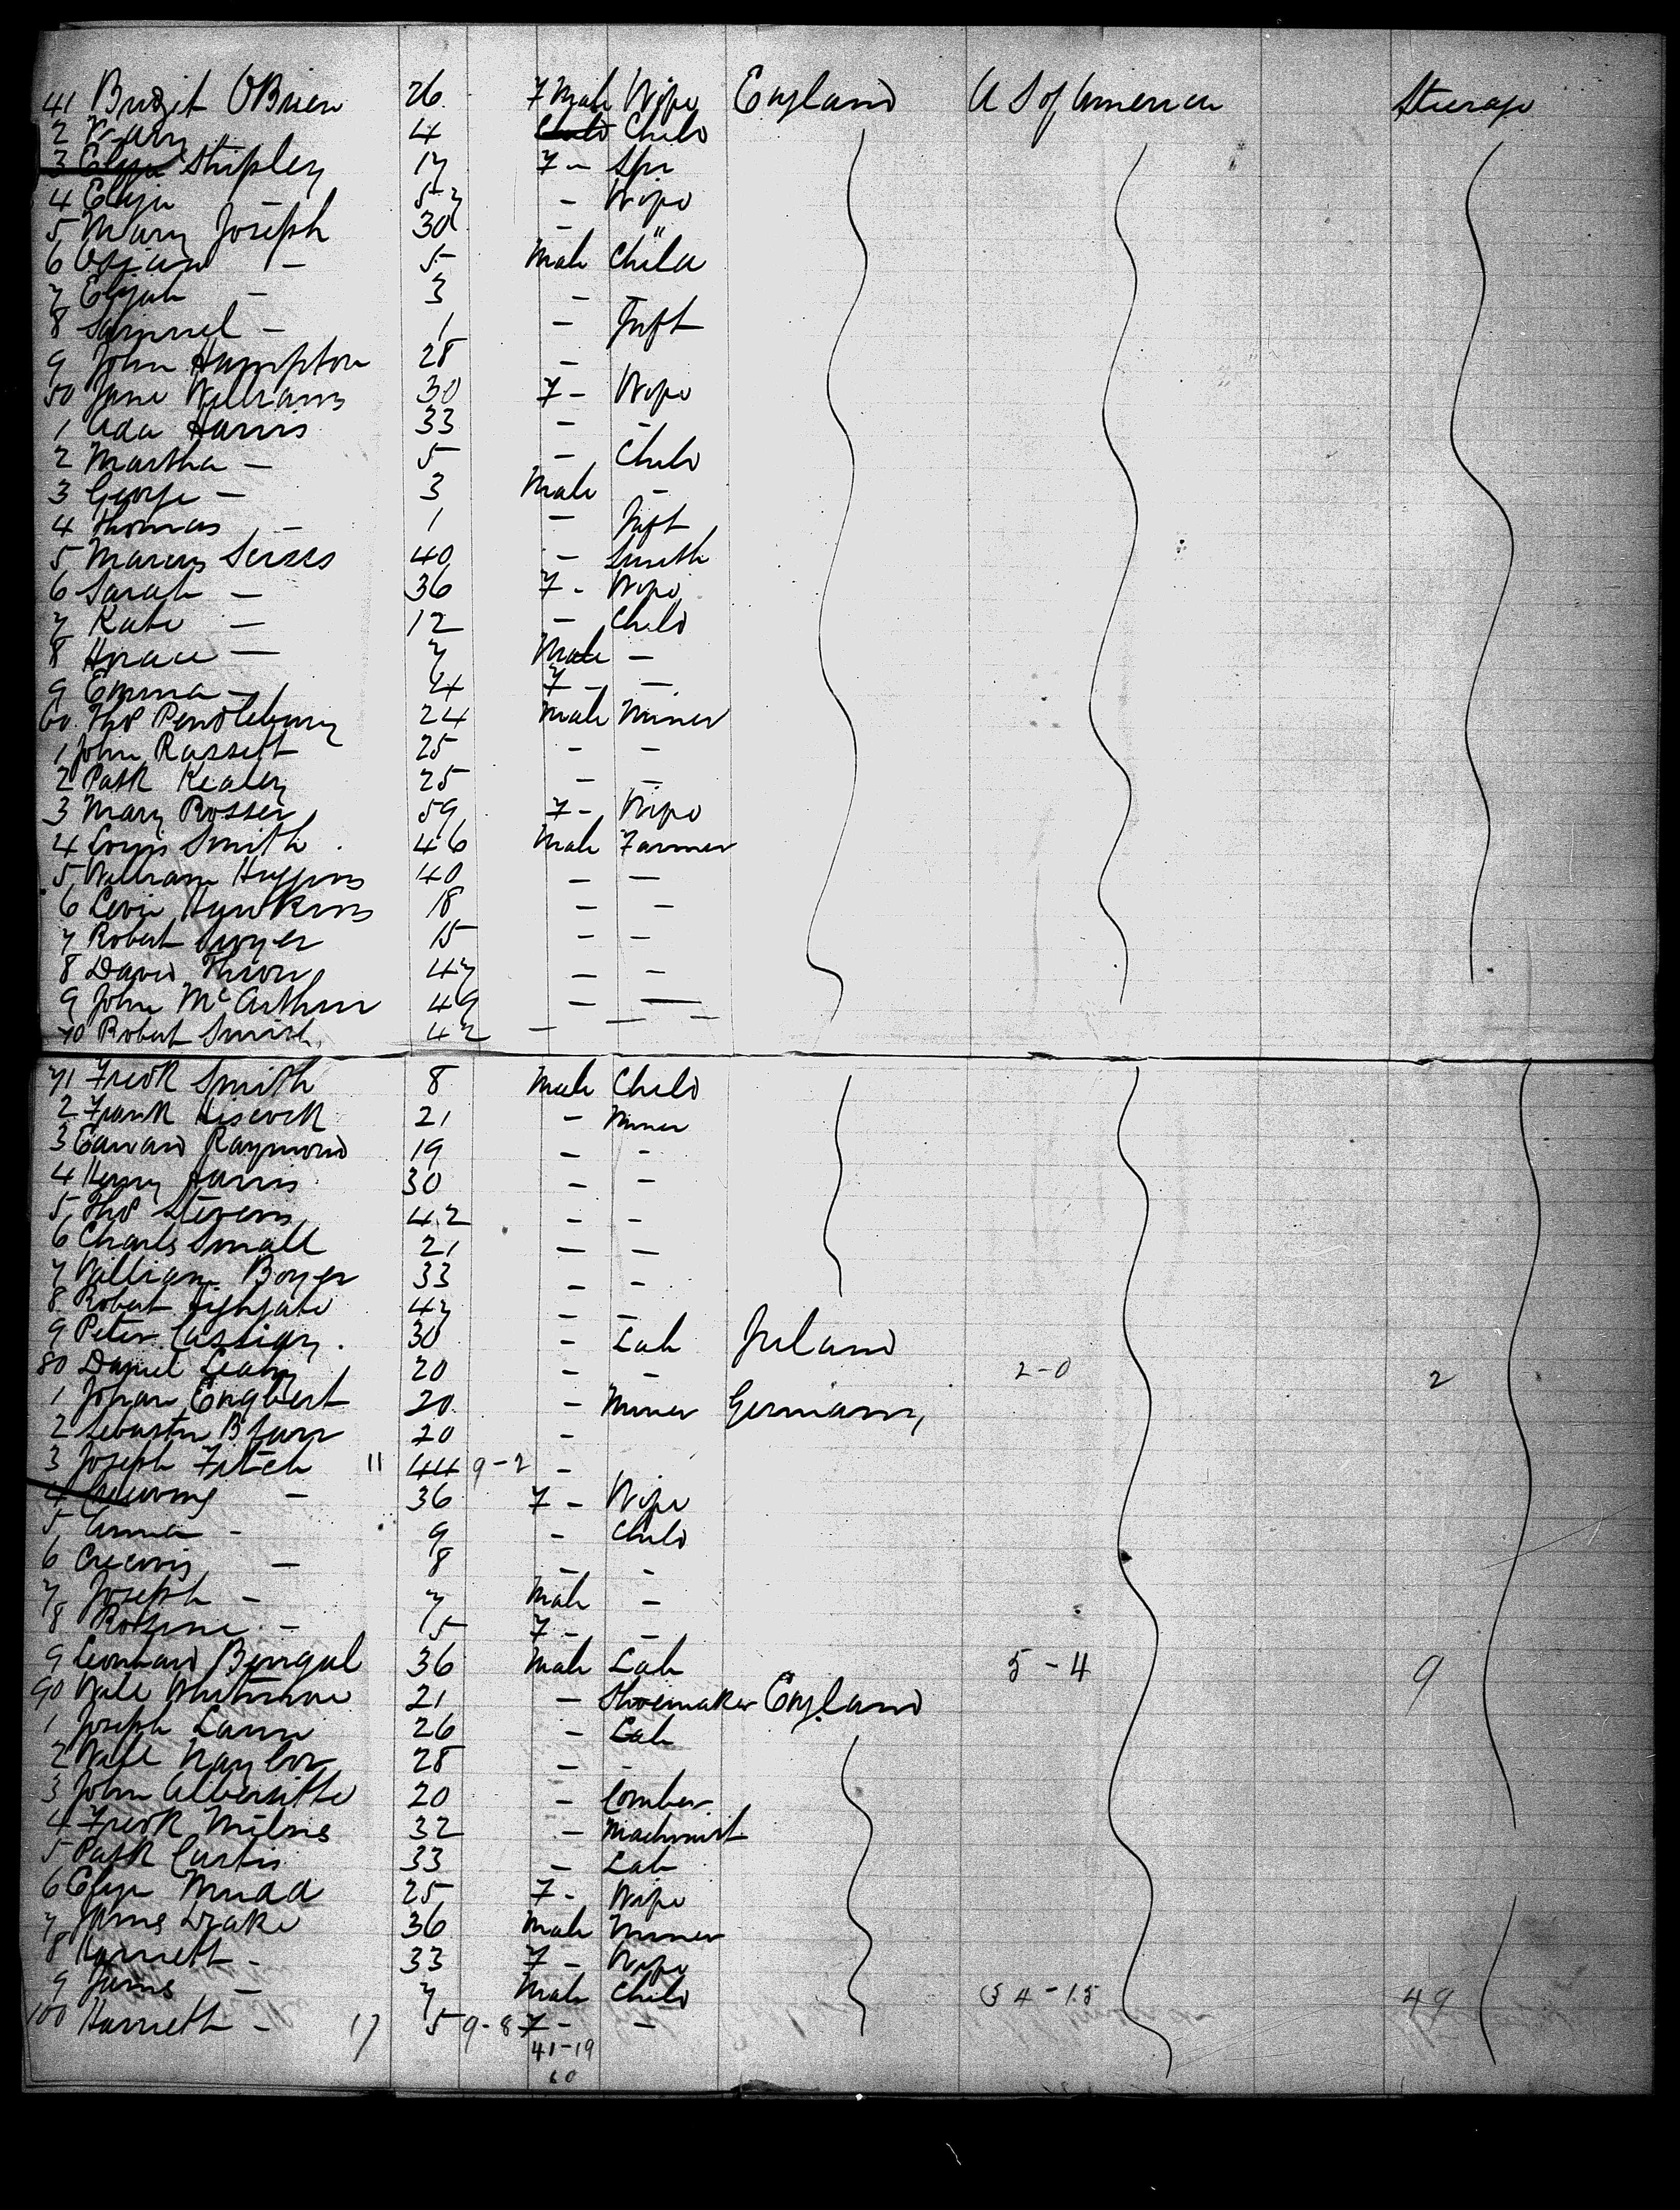 41 Bridgit OBrien 26 Female Wife England U S of America Steerage
2 Mary 4 Child Child
3 Eliza Shipley 17 F - Spr
4 Eliza - 57 - Wife
5 Mary Joseph 30 - "
6 - 5 Male Child
7 Elijah - 3 -
8 Samuel - 1 - Inft
9 John Hampton 28 -
50 Jane Williams 30 F - Wife
1 Ada Harris 33 - -
2 Martha - 5 - Child
3 George - 3 Male -
4 Thomas - 1 - Inft
5 40 - Smith
6 Sarah - 36 F - Wife
7 Kate - 12 - Child
8 Horace - 7 Male -
9 Emma - 4 F - -
60 Thos Pendlebury 24 Male Miner
1 John Rassett 25 - -
2 Patk Kealey 25 - -
3 Mary Rosser 59 F - Wife
4 Louis Smith 46 Male Farmer
5 William Huggins 40 - -
6 Levi Hawkins 18 - -
7 Robert 15 - -
8 David 47 - -
9 John McArthur 49 - -
70 Robert Smith 42 - - -
71 Fredk Smith 8 Male Child
2 Frank Hiscock 21 - Miner
3 Edward Raymond 19 - -
4 Henry Harris 30 - -
5 Thos Stevens 42 - -
6 Charls Small 21 - -
7 William Boyer 33 - -
8 Robert Highgate 47 - -
9 Peter Cassidy 30 - Lab Ireland
80 Daniel Leahy 20 - - 2-0 2
1 Johan Engbert 20 - Miner Germany
2 20 -
3 Joseph Fitch 11 44 9-2 -
4 - 36 F - Wife
5 Anna - 9 - Child
6 - 8 - -
7 Joseph - 7 Male -
8 Rosine - 15 F - -
9 Leonhard Bengal 36 Male Lab 5-4 9
90 Will Whitmore 21 - Shoemaker England
1 Joseph Lamn 26 - Lab
2 Will Naylor 28 - -
3 John 20 - Comber
4 Fredk Milnes 32 - Machinist
5 Patk Curtis 33 - Lab
6 Eliza Mudd 25 F - Wife
7 James Drake 36 Male Miner
8 Harriett - 33 F - Wife
9 James - 7 Male Child 34-15 49
100 Harriett - 17 5 9-8 F - -
41-19
60